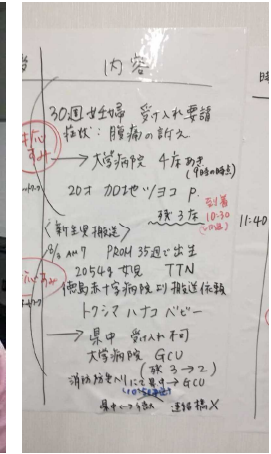 内容
30週妊婦 受け入れ要請
症状：腹痛の訴え
→大学病院 4床あき
(9時の時点)
20才 カロ地ツヨコ P.
残3床
到着
10:30
11:40
〈新生児搬送〉
8/3 AM7 PROM 35週で出生
2054g 女児 TTN
徳島赤十字病院より搬送依頼
トクシマ ハナコ ベビー
→県中 受け入れ不可
大学病院 GCU
(残3→2)
県中→GCU
連絡橋×